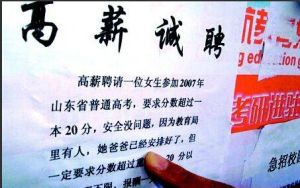 高薪诚聘
高薪聘请一位女生参加2007年
山东省普通高考，要求分数超过一
本20分，安全没问题，因为教育局
里有人，她爸爸已经安排好了，但
一定要求分数超过重 20分以
考研进驻
急招校